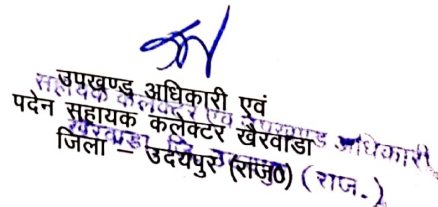 उपखण्ड अधिकारी एवं
पदेन सहायक कलेक्टर खैरवाडा
जिला – उदयपुर (राज0)
सहायक कलेक्टर एवं उपखण्ड अधिकारी
(राज.)